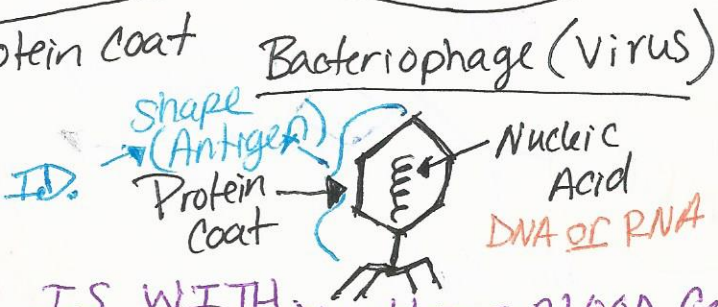 otein coat
Bacteriophage (Virus)
shape
(Antigen)
I.D.
Protein
coat
Nucleic
Acid
DNA or RNA
IS WITH